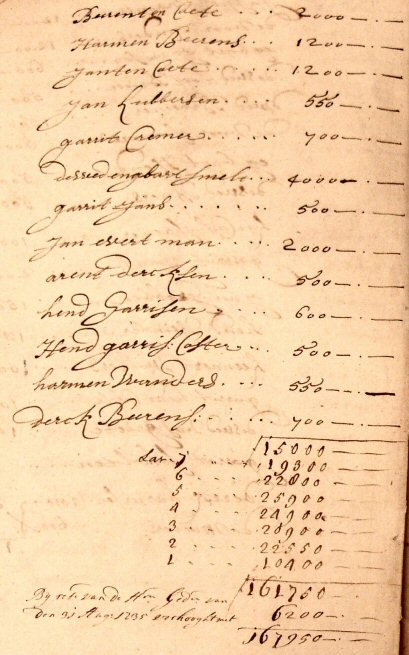 Berent on Coete 2000 — · —
Harmen Beerens 1200 — · —
Jan ten Coete 1200 — · —
Jan Lubbersen 550 — · —
garrit Cremer 700 — · —
4000 — · —
garrit Jans 500 — · —
Jan evert man 2000 — · —
arent dercksen 500 — · —
hend Garrisen 600 — · —
Hend garris: Coster 500 — · —
harmen Wanders 550 — · —
derck Beerens 700 — · —
15000 — —
7 19300 — —
6 22800 — —
5 25900 — —
4 24900 — —
3 20900 — —
2 22550 — —
1 10400 — —
161750 — —
By van de 6200 — —
den 31 Aug: 1735 verhooght met
167950 — · —